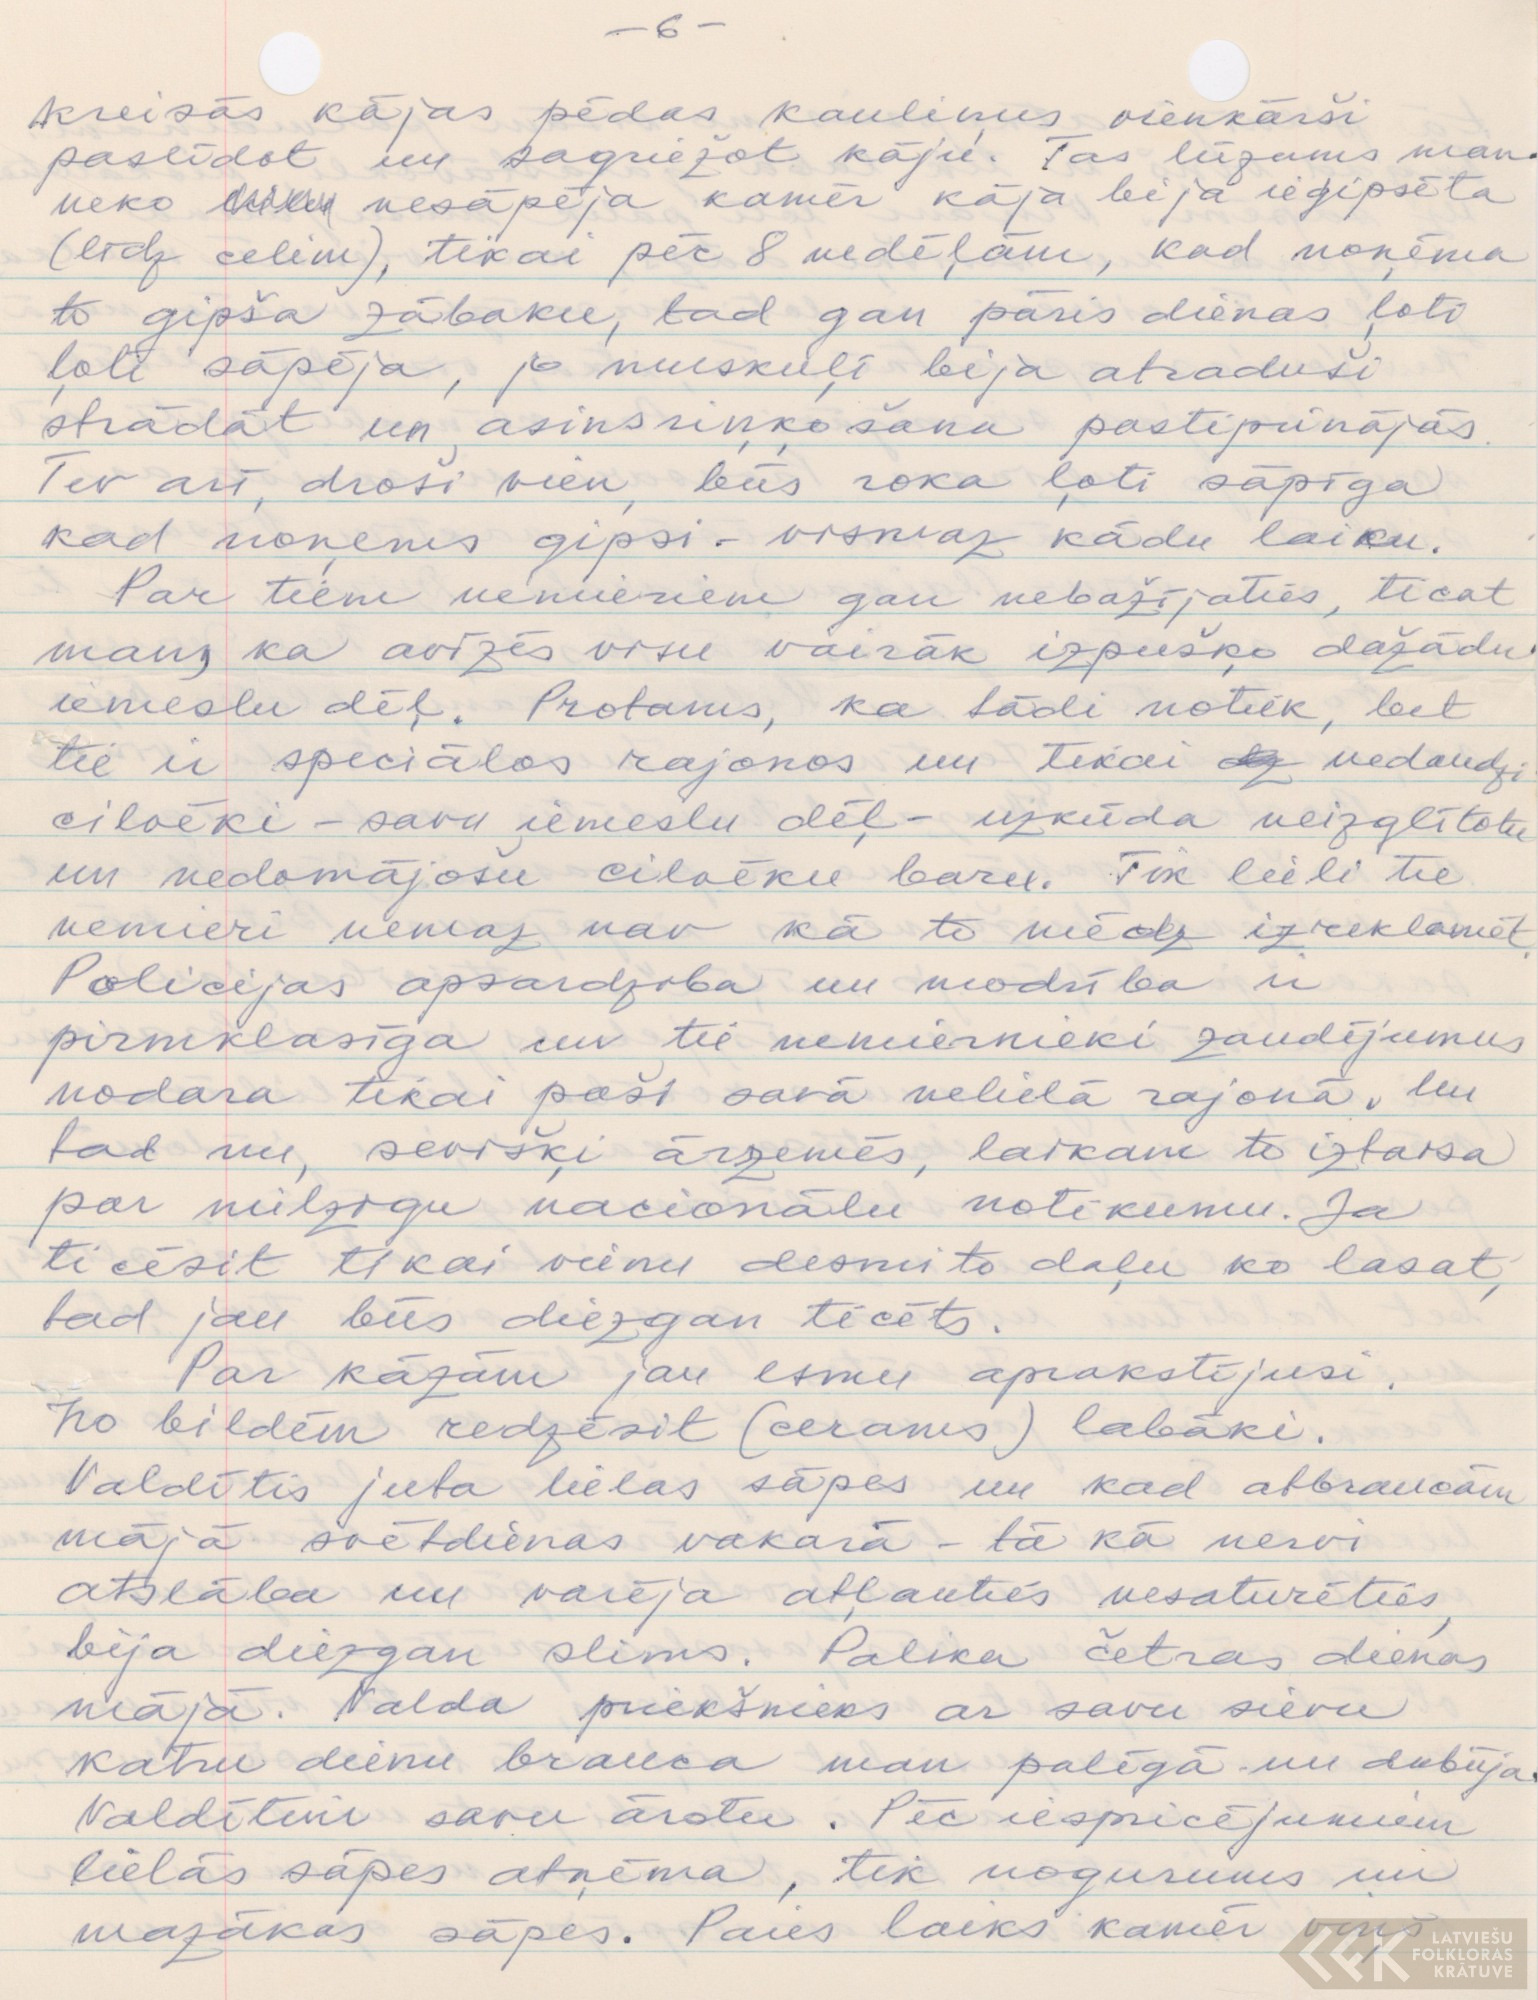 – 6 –
kreisās kājas pēdas kauliņus vienkārši
paslīdot un sagriežot kāju. Tas lūzums man
neko nesāpēja kamēr kāja bija ieģipsēta
(līdz celim), tikai pēc 8 nedēļām, kad noņēma
to ģipša zābaku, tad gan pāris dienas ļoti
ļoti sāpēja, jo muskuļi bija atraduši
strādāt un asinsriņķošana pastiprinājās.
Tev arī, droši vien, būs roka ļoti sāpīga
kad noņems ģipsi – vismaz kādu laiku.
Par tiem nemieriem gan nebažījaties, ticat
man, ka avīzēs visu vairāk izpušķo dažādu
iemeslu dēļ. Protams, ka tādi notiek, bet
tie ir speciālos rajonos un tikai nedaudzi
cilvēki – savu iemeslu dēļ – uzkūda neizglītotu
un nedomājošu cilvēku baru. Tik lieli tie
nemieri nemaz nav kā to mēdz izreklamēt.
Policijas apsardzība un modrība ir
pirmklasīga un tie nemiernieki zaudējumus
nodara tikai paši savā nelielā rajonā. Un
tad nu, sevišķi ārzemēs, laikam to iztaisa
par milzīgu nacionālu notikumu. Ja
ticēsit tikai vienu desmito daļu ko lasat,
tad jau būs diezgan ticēts.
Par kāzām jau esmu aprakstījusi.
No bildēm redzēsit (cerams) labāki.
Valdītis juta lielas sāpes un kad atbraucām
mājā svētdienas vakarā – tā kā nervi
atslāba un varēja atļauties nesaturēties,
bija diezgan slims. Palika četras dienas
mājā. Valda priekšnieks ar savu sievu
katru dienu brauca man palīgā un dabūja
Valdītim savu ārstu. Pēc iespricējumiem
lielās sāpes atņēma, tik nogurums un
mazākas sāpes. Paies laiks kamēr viņš
LATVIEŠU
FOLKLORAS
KRĀTUVE